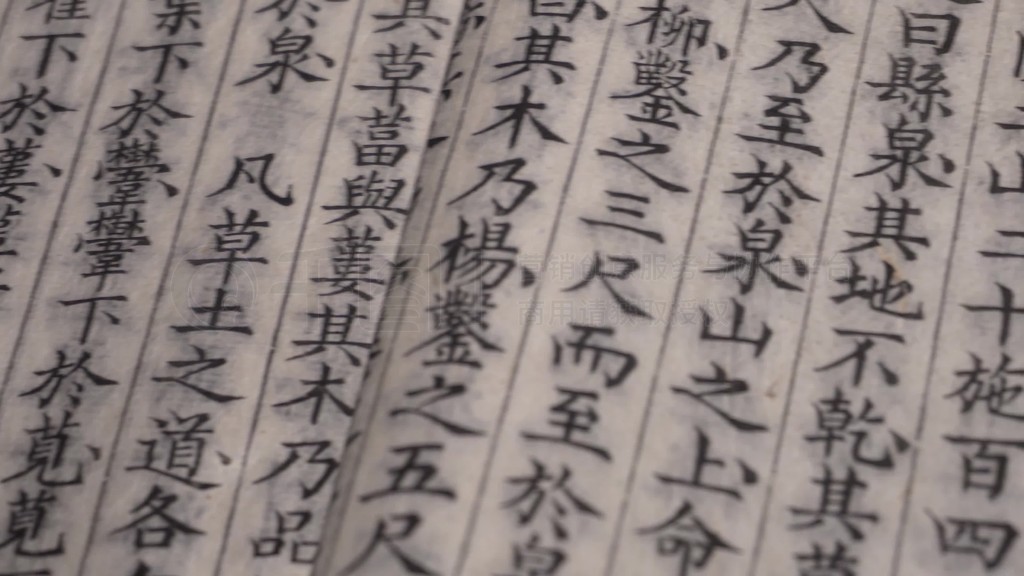 山二十施百四
曰縣泉其地不乾其草
尺乃至於泉山之上命
柳鑿之三尺而至於泉
其木乃楊鑿之五尺
其草葍與蔞其木乃品
於泉 凡草土之道各
葉下於下於莧莧
下於蔞蔞